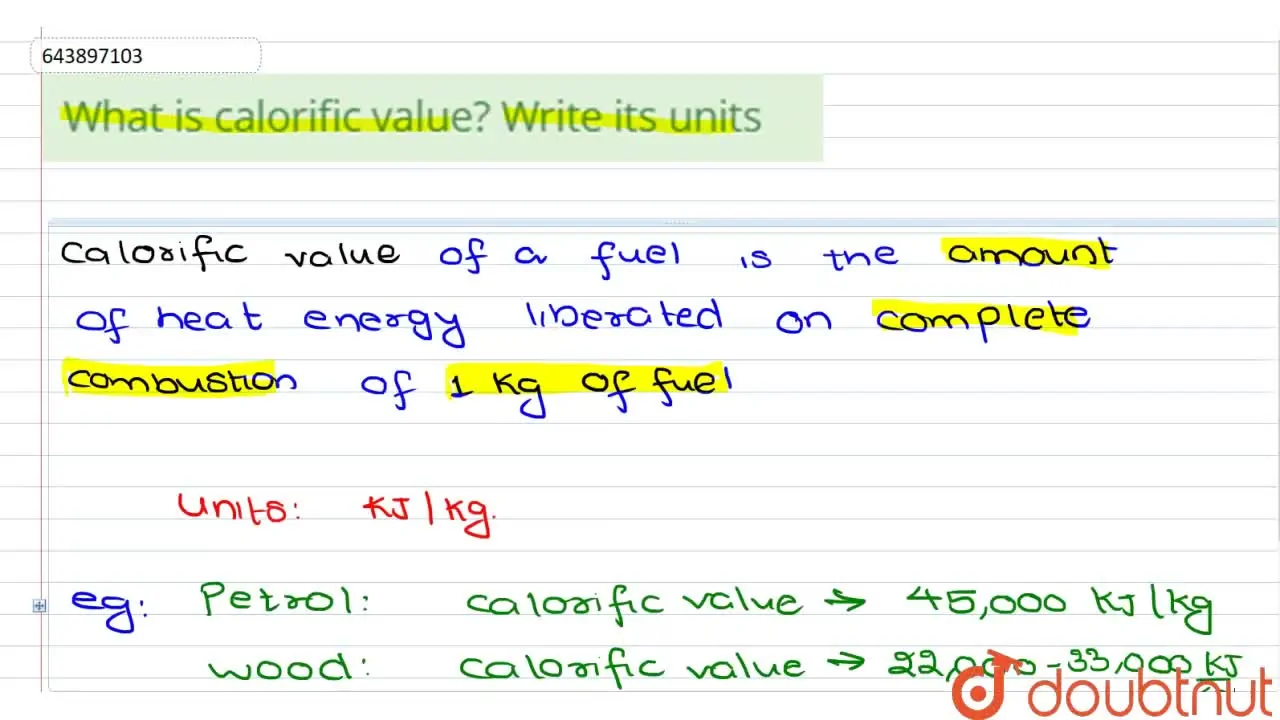 643897103
What is calorific value? Write its units
Calorific value of a fuel is the amount
of heat energy liberated on complete
combustion of 1 kg of fuel
Units: KJ/kg.
eg: Petrol: calorific value → 45,000 KJ/kg
wood: calorific value → 22,000-33,000 KJ
doubtnut